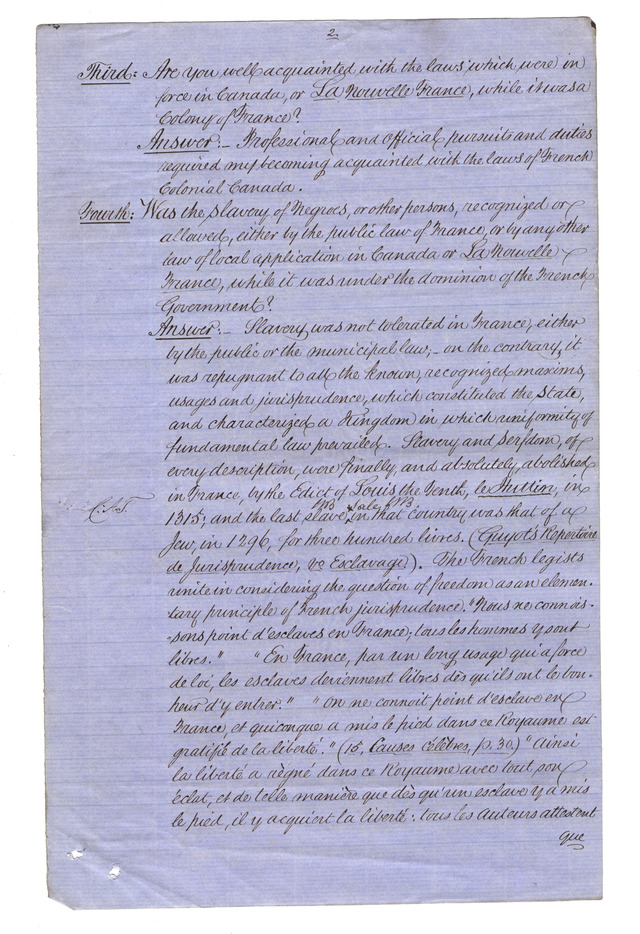 2
Third: Are you well acquainted with the laws which were in
force in Canada, or La Nouvelle France, while it was a
Colony of France?
Answer:- Professional and Official pursuits and duties
required my becoming acquainted with the laws of French
Colonial Canada.
Fourth: Was the slavery of Negroes, or other persons, recognized or
allowed, either by the public law of France, or by any other
law of local application in Canada or La Nouvelle
France, while it was under the dominion of the French
Government?
Answer:- Slavery was not tolerated in France, either
by the public or the municipal law;- on the contrary, it
was repugnant to all the known, recognized maxims,
usages and jurisprudence, which constituted the State,
and characterized a Kingdom in which uniformity of
fundamental law prevailed. Slavery and serfdom, of
every description, were finally, and absolutely, abolished
in France, by the Edict of Louis the Tenth, le Huttin, in
sale
1315; and the last slave in that country was that of a
Jew, in 1296, for three hundred livres. (Guyot's Repertoire
de Jurisprudence, vo Esclavage). The French legists
unite in considering the question of freedom as an elemen-
tary principle of French jurisprudence. "Nous ne connois-
-sons point d'esclaves en France; tous les hommes y sont
libres." "En France, par un long usage qui a force
de loi, les esclaves deviennent libres dès qu'ils ont le bon-
heur d'y entrer." "On ne connoit point d'esclave en
France, et quiconque a mis le pied dans ce Royaume est
gratifié de la liberté." (15, Causes Célèbres, p. 30.) "Ainsi
la liberté a règné dans ce Royaume avec tout son
éclat, et de telle manière que dès qu'un esclave y a mis
le pied, il y acquiert la liberté: tous les auteurs attestent
que